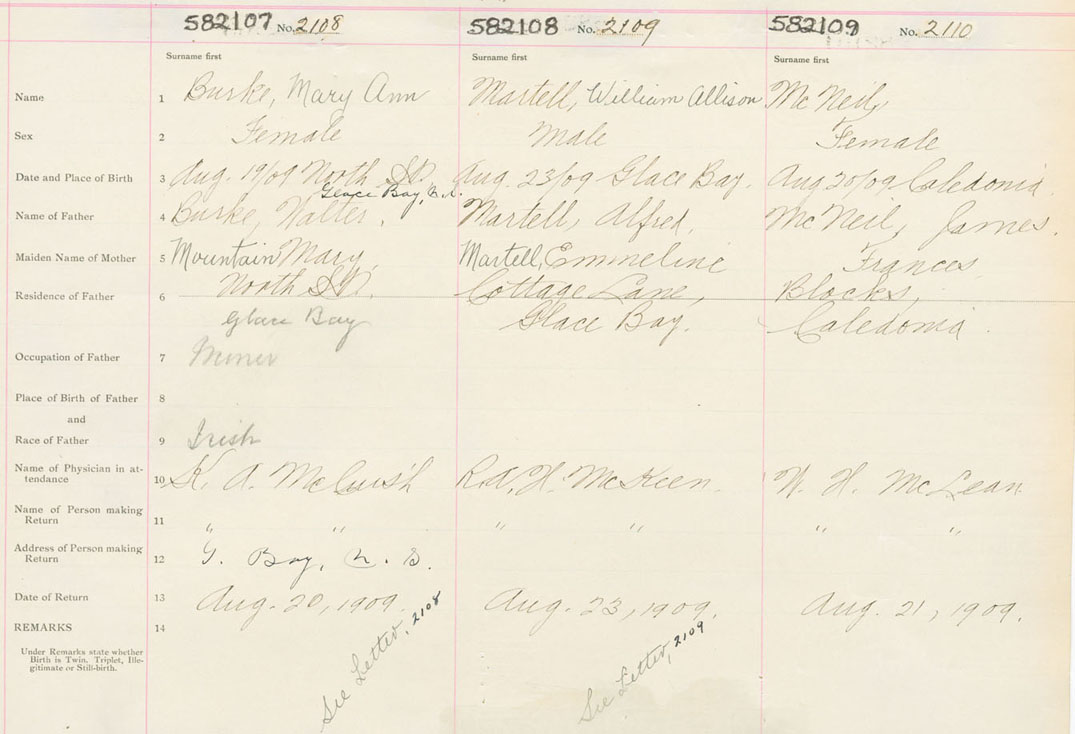 582107 No. 2108 582108 No. 2109 582109 No. 2110
Surname first Surname first Surname first
Name 1 Burke, Mary Ann Martell, William Allison Mc Neil,
Sex 2 Female Male Female
Date and Place of Birth 3 Aug. 19/09 North St. Aug. 23/09 Glace Bay. Aug 20/09 Caledonia.
Glace Bay, C.B.
Name of Father 4 Burke, Walter. Martell, Alfred. Mc Neil, James.
Maiden Name of Mother 5 Mountain Mary, Martell, Emmeline Frances
Residence of Father 6 North St. Cottage Lane, Blocks,
Glace Bay Glace Bay. Caledonia.
Occupation of Father 7 Miner
Place of Birth of Father 8
and
Race of Father 9 Irish
Name of Physician in at-
tendance 10 K. A. McCuish R. A. H. McKeen. W. H. McLean
Name of Person making
Return 11 " " " " " "
Address of Person making
Return 12 G. Bay, C. B.
Date of Return 13 Aug. 20, 1909. Aug. 23, 1909. Aug. 21, 1909.
REMARKS 14
Under Remarks state whether
Birth is Twin, Triplet, Ille-
gitimate or Still-birth.
See Letter, 2108 See Letter, 2109